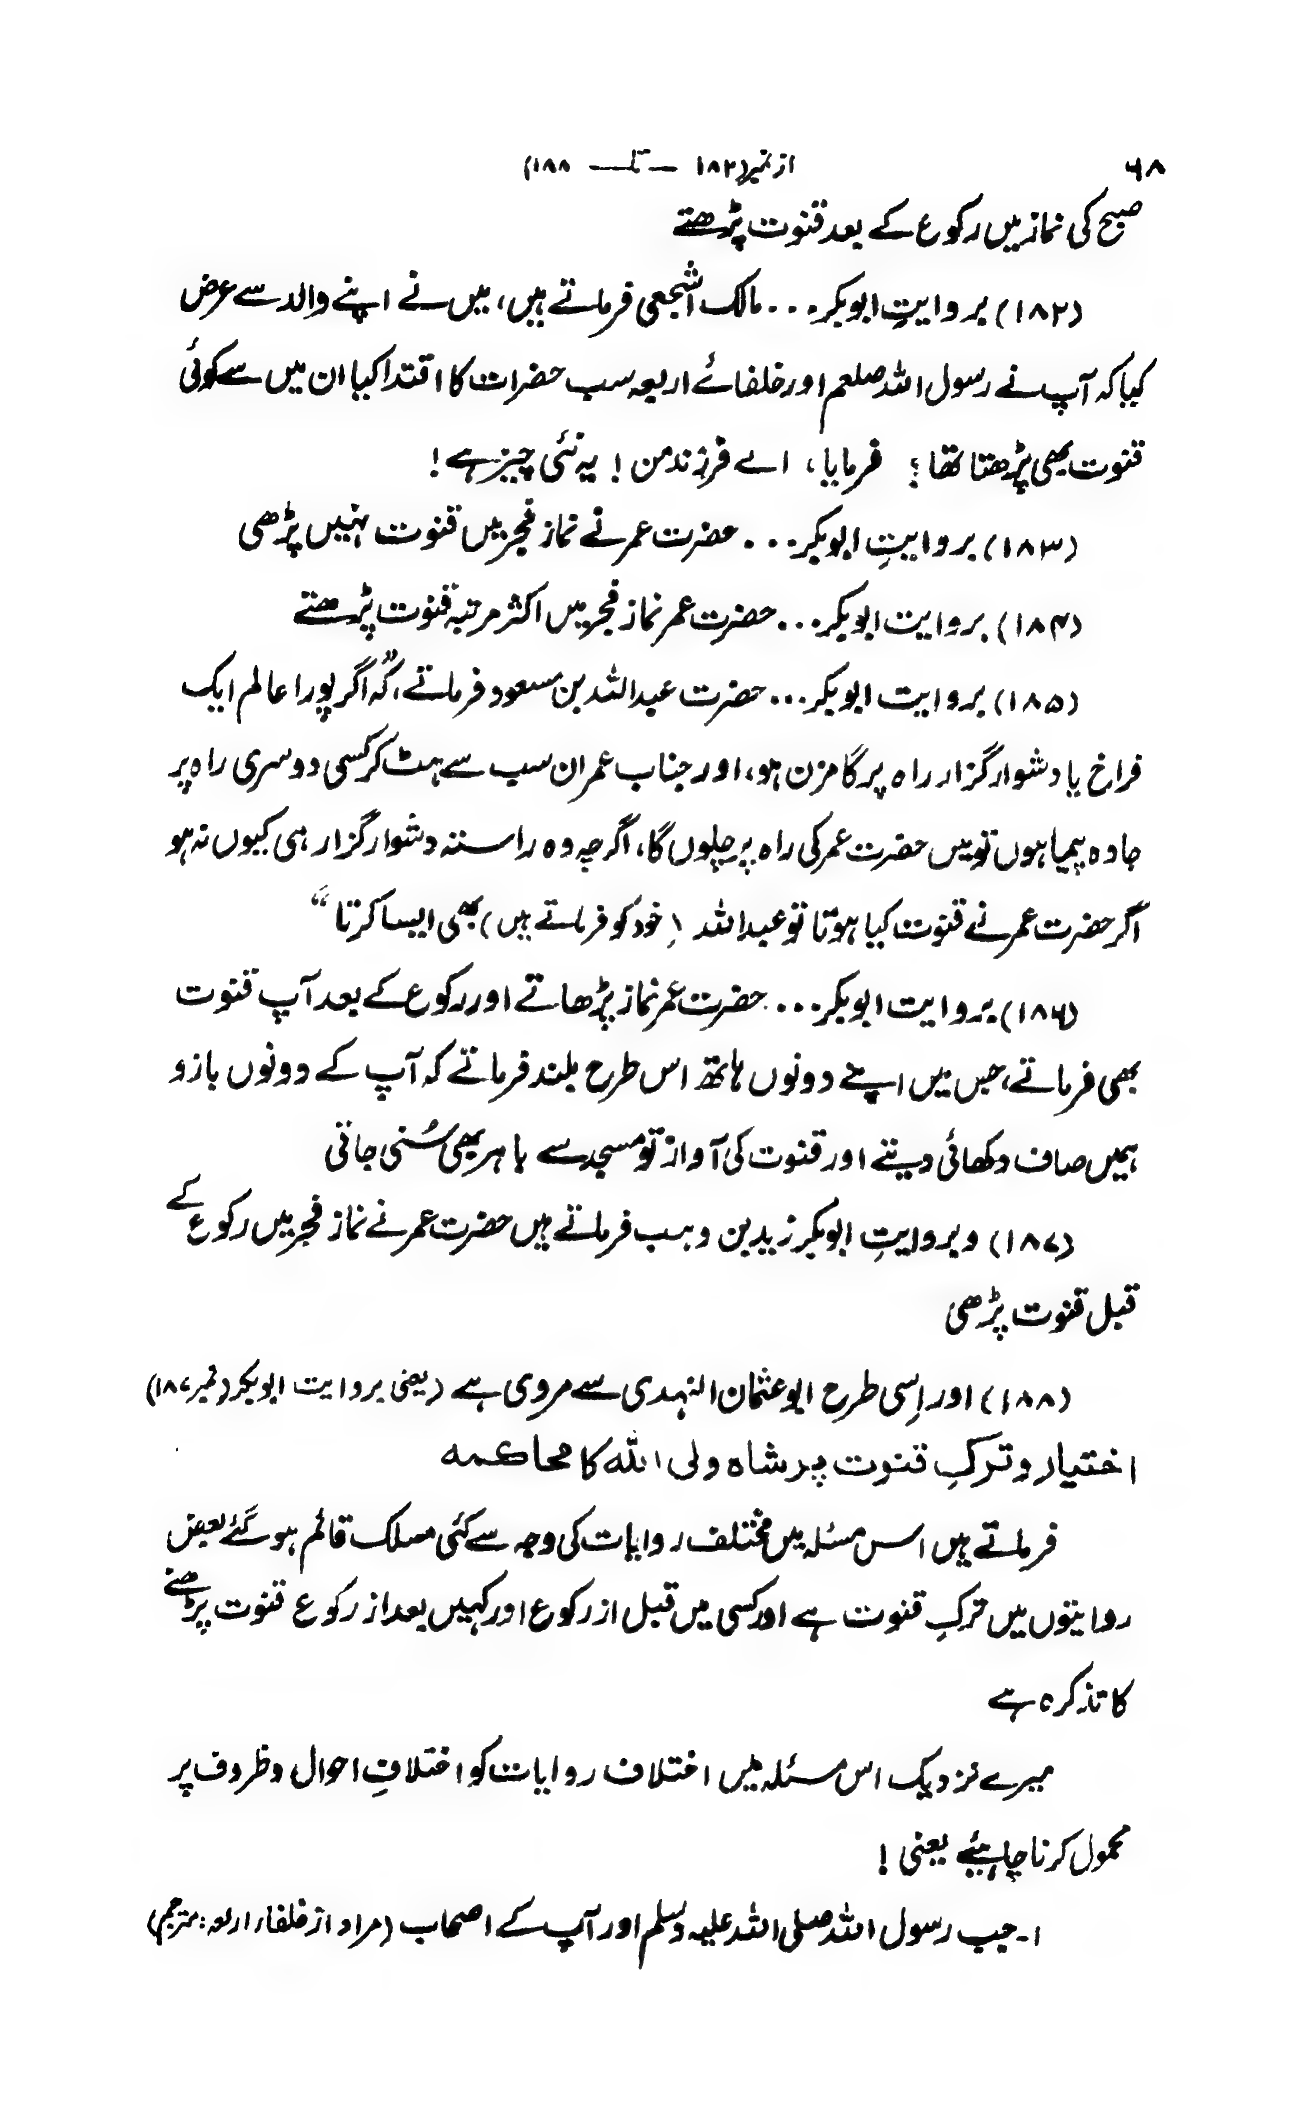 ۶۸ از نمبر(۱۸۲ — تا — ۱۸۸)
صبح کی نماز میں رکوع کے بعد قنوت پڑھتے
(۱۸۲) بروایتِ ابوبکر... مالک اشجعی فرماتے ہیں، میں نے اپنے والد سے عرض
کیا کہ آپ نے رسول اللہ صلعم اور خلفائے اربعہ سب حضرات کا اقتدا کیا ان میں سے کوئی
قنوت بھی پڑھتا تھا؟ فرمایا، اے فرزند من! یہ نئی چیز ہے!
(۱۸۳) بروایتِ ابوبکر... حضرت عمر نے نماز فجر میں قنوت نہیں پڑھی
(۱۸۴) بروایت ابوبکر... حضرت عمر نماز فجر میں اکثر مرتبہ قنوت پڑھتے
(۱۸۵) بروایت ابوبکر... حضرت عبداللہ بن مسعود فرماتے، کہ "اگر پورا عالم ایک
فراخ یا دشوار گزار راہ پر گامزن ہو، اور جناب عمر ان سب سے ہٹ کر کسی دوسری راہ پر
جادہ پیما ہوں تو میں حضرت عمر کی راہ پر چلوں گا، اگرچہ وہ راستہ دشوار گزار ہی کیوں نہ ہو
اگر حضرت عمر نے قنوت کیا ہوتا تو عبداللہ (خود کو فرماتے ہیں) بھی ایسا کرتا"
(۱۸۶) بروایت ابوبکر... حضرت عمر نماز پڑھاتے اور رکوع کے بعد آپ قنوت
بھی فرماتے، جس میں اپنے دونوں ہاتھ اس طرح بلند فرماتے کہ آپ کے دونوں بازو
ہمیں صاف دکھائی دیتے اور قنوت کی آواز تو مسجد سے باہر بھی سُنی جاتی
(۱۸۷) و بروایتِ ابوبکر زید بن وہب فرماتے ہیں حضرت عمر نے نماز فجر میں رکوع کے
قبل قنوت پڑھی
(۱۸۸) اور اِسی طرح ابو عثمان النہدی سے مروی ہے (یعنی بروایت ابوبکر (نمبر ۱۸۷)
اختیار و ترکِ قنوت پر شاہ ولی اللہ کا محاکمہ
فرماتے ہیں اس مسئلہ میں مختلف روایات کی وجہ سے کئی مسلک قائم ہو گئے بعض
روایتوں میں ترکِ قنوت ہے اور کسی میں قبل از رکوع اور کہیں بعد از رکوع قنوت پڑھنے
کا تذکرہ ہے
میرے نزدیک اس مسئلہ میں اختلاف روایات کو اختلافِ احوال و ظروف پر
محمول کرنا چاہیئے یعنی!
۱۔ جب رسول اللہ صلی اللہ علیہ وسلم اور آپ کے اصحاب (مراد از خلفاء اربعہ: مترجم)